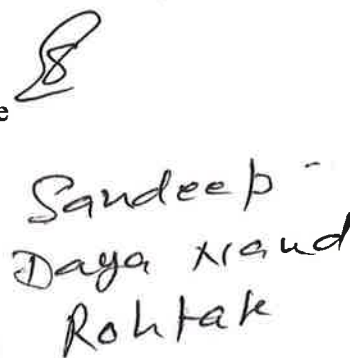 e
Sandeep
Daya
Rohtak